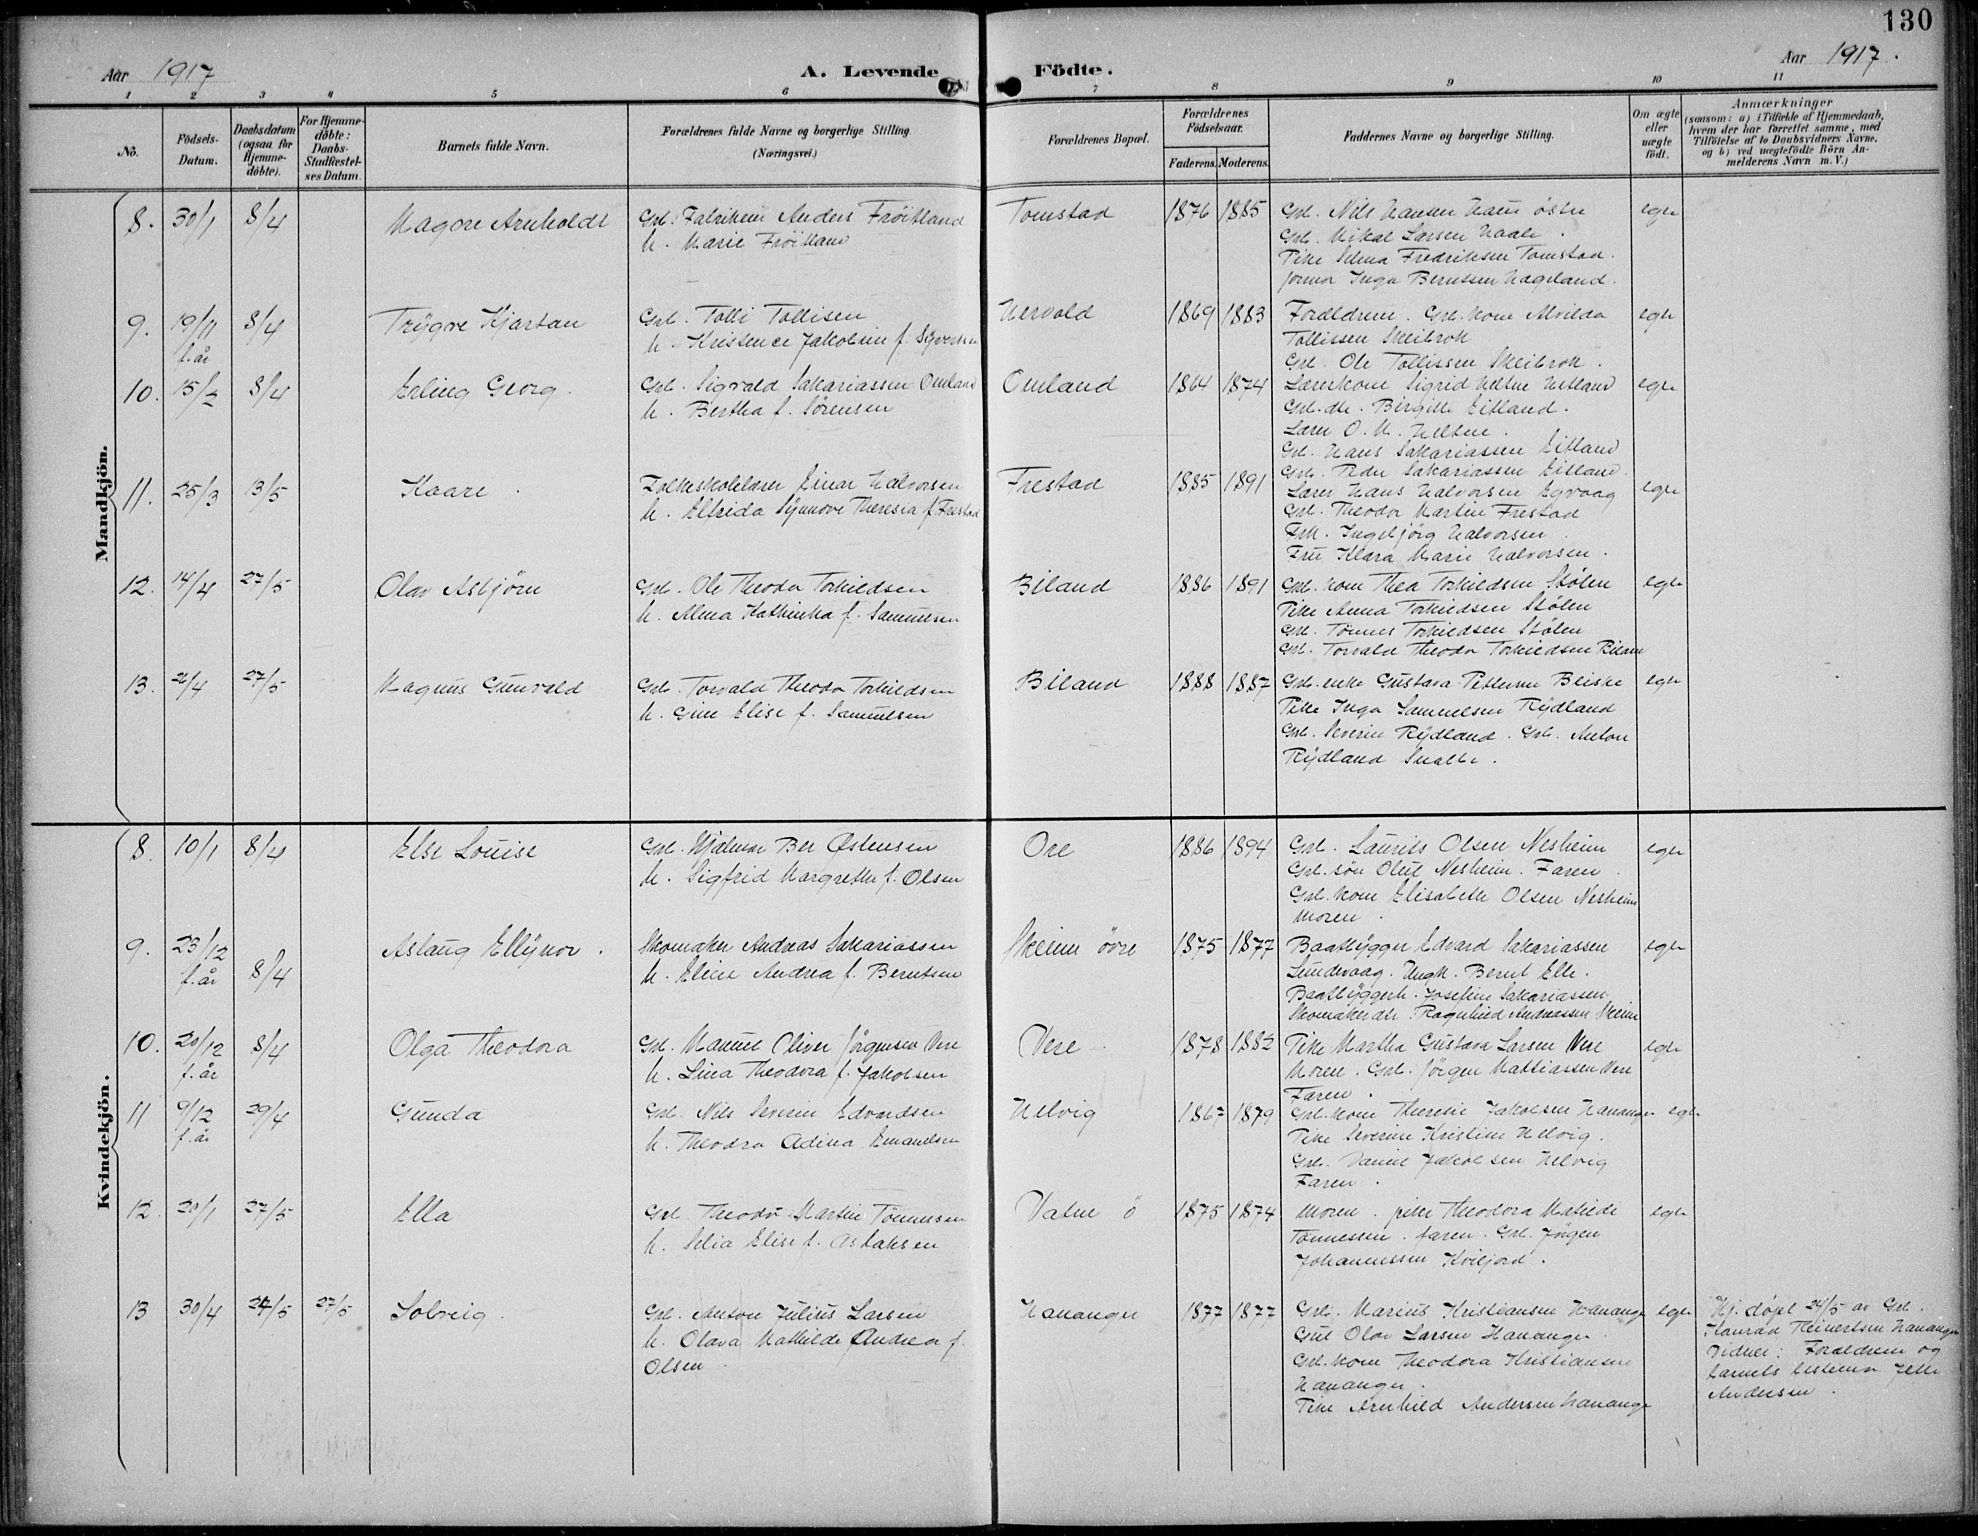 130
Aar 1917
A. Levende Födte.
Aar 1917.
1 2 3 4 5 6 7 8 9 10 11
No.
Födsels-Datum.
Daabsdatum (ogsaa for Hjemme-döbte).
For Hjemme-döbte: Daabs-Stadfæstel-ses Datum.
Barnets fulde Navn.
Forældrenes fulde Navne og borgerlige Stilling
(Næringsvei.)
Forældrenes Bopæl.
Forældrenes Födselsaar.
Faderens. Moderens.
Faddernes Navne og borgerlige Stilling.
Om ægte eller uægte födt.
Anmærkninger
(saasom: a) i Tilfælde af Hjemmedaab, hvem der har forrettet samme, med Tilföielse af to Daabsvidners Navne, og b) ved uægtefödte Börn An-melderens Navn m. V.)
Mandkjön.
8. 30/1 8/4 Magne Arnholdt
Grb. Fabrikeier Anders Fröitland
h. Marie Fröitland
Tomstad 1876 1885
Grb. Nils Hansen Haus østre
Grb. Mikal Larsen Haale.
Pike Selma Fredriksen Tomstad.
Jomor Inga Berntsen Hageland.
egte
9. 19/11 f. år 8/4 Trygve Kjartan
Grb. Tolli Tollisen
h. Kristence Jakobine f. Syvertsen
Hervold 1869 1883
Foreldrene. Grb. kone Alvilda
Tollissen Skeibrok
Grb. Ole Tollissen Skeibrok.
egte
10. 15/2 8/4 Erling Georg.
Grb. Sigvald Sakariassen Omland
h. Bertha f. Sörensen
Omland 1864 1874
Lærerkone Sigrid Heltne Vetland
Grb. dtr. Birgitte Eitland.
Lærer O. M. Heltne.
Grb. Hans Sakariassen Eitland
Grb. Peder Sakariassen Eitland.
egte
11. 25/3 13/5 Kaare.
Folkeskolelærer Einar Halvorsen
h. Elfrida Synnöve Theresia f. Frestad
Frestad 1885 1891
Lærer Hans Halvorsen Egvaag
Grb. Theodor Martin Frestad
Frk. Ingebjörg Halvorsen.
Fru Klara Marie Halvorsen.
egte
12. 14/4 27/5 Olav Asbjörn
Grb. Ole Theodor Torkildsen
h. Alma Kathinka f. Samuelsen
Biland 1886 1891
Grb. kone Thea Torkildsen Stølen
Pike Anna Torkildsen Stølen
Grb. Tönnes Torkildsen Stølen
Grb. Torvald Theodor Torkildsen Biland
egte
13. 21/4 27/5 Magnus Gunvald
Grb. Torvald Theodor Torkildsen
h. Gine Elise f. Samuelsen
Biland 1888 1887
Grb. enke Gustava Pettersen Briske
Pike Inga Samuelsen Rydland
Grb. Severin Rydland. Grb. Anton
Rydland Snalte.
egte
Kvindekjön.
8. 10/1 8/4 Else Louise
Grb. Hjalmar Ber Østensen
h. Sigfrid Margrethe f. Olsen
Ore 1886 1894
Grb. Laurits Olsen Nesheim
Grb. sön Oluf Nesheim. Faren.
Grb. kone Elisabeth Olsen Nesheim
Moren.
egte
9. 23/12 f. år 8/4 Aslaug Ellynor.
Skomaker Andreas Sakariassen
h. Elise Andrea f. Berntsen
Skeime övre 1875 1877
Baatbygger Edvard Sakariassen
Lundevaag. Ungk. Bernt Elle.
Baatbyggerh. Josefine Sakariassen
Skomakerdtr. Ragnhild Andreassen Skeime
egte
10. 20/12 f. år 8/4 Olga Theodora
Grb. Manuel Oliver Jörgensen Vere
h. Lina Theodora f. Jakobsen
Vere 1878 1882
Pike Martha Gustava Larsen Vere
Moren. Grb. Jörgen Mattiassen Vere
Faren.
egte
11 9/12 f. år 29/4 Gunda
Grb. Nils Severin Edvardsen
h. Theodora Adina Emanelsen
Helvig 1867 1879
Grb. kone Theresie Jakobsen Hananger
Pike Severine Kristine Helvig.
Grb. Daniel Jakobsen Helvig
Faren.
egte
12. 20/1 27/5 Ella
Grb. Theodor Martin Tönnessen
h. Selia Elise f. Aslaksen
Vatne ö 1875 1874
Moren. pike Theodora Matilde
Tönnessen. Faren. Grb. Jörgen
Johannessen Kviljord.
egte
13 30/4 24/5 27/5 Solveig.
Grb. Anton Julius Larsen
h. Olava Mathilde Andrea f.
Olsen
Hananger 1877 1877
Grb. Marius Kristiansen Hananger
Gut Olav Larsen Hananger.
Grb. kone Theodora Kristiansen
Hananger.
Pike Arnhild Andersen Hananger
egte
Hj. døpt 24/5 av Grb.
Konrad Reinertsen Hananger
Vidner: Foreldrene og
Andersen.